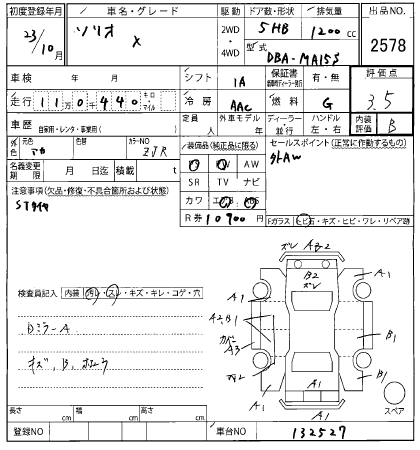 初度登録年月 車名・グレード 駆動 ドア数・形状 排気量 出品NO.
23/10月 ソリオ X 2WD ・ 4WD 5HB 1200cc 2578
型式 DBA-MA15S
車検 年 月 シフト IA 保証書 有・無 評価点
走行 11万0千440 キロ・マイル 冷房 AAC 燃料 G 3.5
車歴 自家用・レンタ・事業用( ) 定員 人 外車モデル 年 ディーラー・並行 ハンドル 左・右 内装評価 B
外色 元色 色替 カラーNO ZJR
装備品(純正品に限る) セールスポイント(正常に作動するもの)
AW 外AW
名義変更期限 月 日迄 積載 t SR TV ナビ
注意事項(欠品・修復・不具合箇所および状態) カワ エアB ABS
STタイヤ R券 10900円 Fガラス ヒビ石・キズ・ヒビ・ワレ・リペア跡
検査員記入 内装 汚レ・スレ・キズ・キレ・コゲ・穴
DミラーA
キズ、B、
A2
B2
A1
A1
B1
A3
B1
A1
A1
A1
A1
スペア
長さ cm 幅 cm 高さ cm
登録NO 車台NO 132527